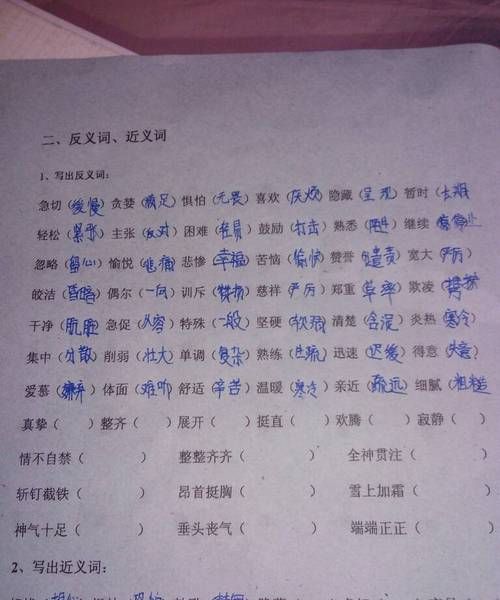 二、反义词、近义词
1、写出反义词：
急切（缓慢）贪婪（满足）惧怕（无畏）喜欢（厌烦）隐藏（呈现）暂时（长期
轻松（紧张）主张（反对）困难（容易）鼓励（打击）熟悉（陌生）继续（停止
忽略（留心）愉悦（悲痛）悲惨（幸福）苦恼（愉快）赞誉（谴责）宽大（严厉）
皎洁（昏暗）偶尔（一向）训斥（赞扬）慈祥（严厉）郑重（草率）欺凌（
干净（肮脏）急促（从容）特殊（一般）坚硬（软弱）清楚（含混）炎热（寒冷）
集中（分散）削弱（壮大）单调（复杂）熟练（生疏）迅速（迟缓）得意（失意）
爱慕（嫌弃）体面（难听）舒适（辛苦）温暖（寒冷）亲近（疏远）细腻（粗糙
真挚（ ）整齐（ ）展开（ ）挺直（ ）欢腾（ ）寂静（ ）
情不自禁（ ） 整整齐齐（ ） 全神贯注（ ）
斩钉截铁（ ） 昂首挺胸（ ） 雪上加霜（ ）
神气十足（ ） 垂头丧气（ ） 端端正正（ ）
2、写出近义词：